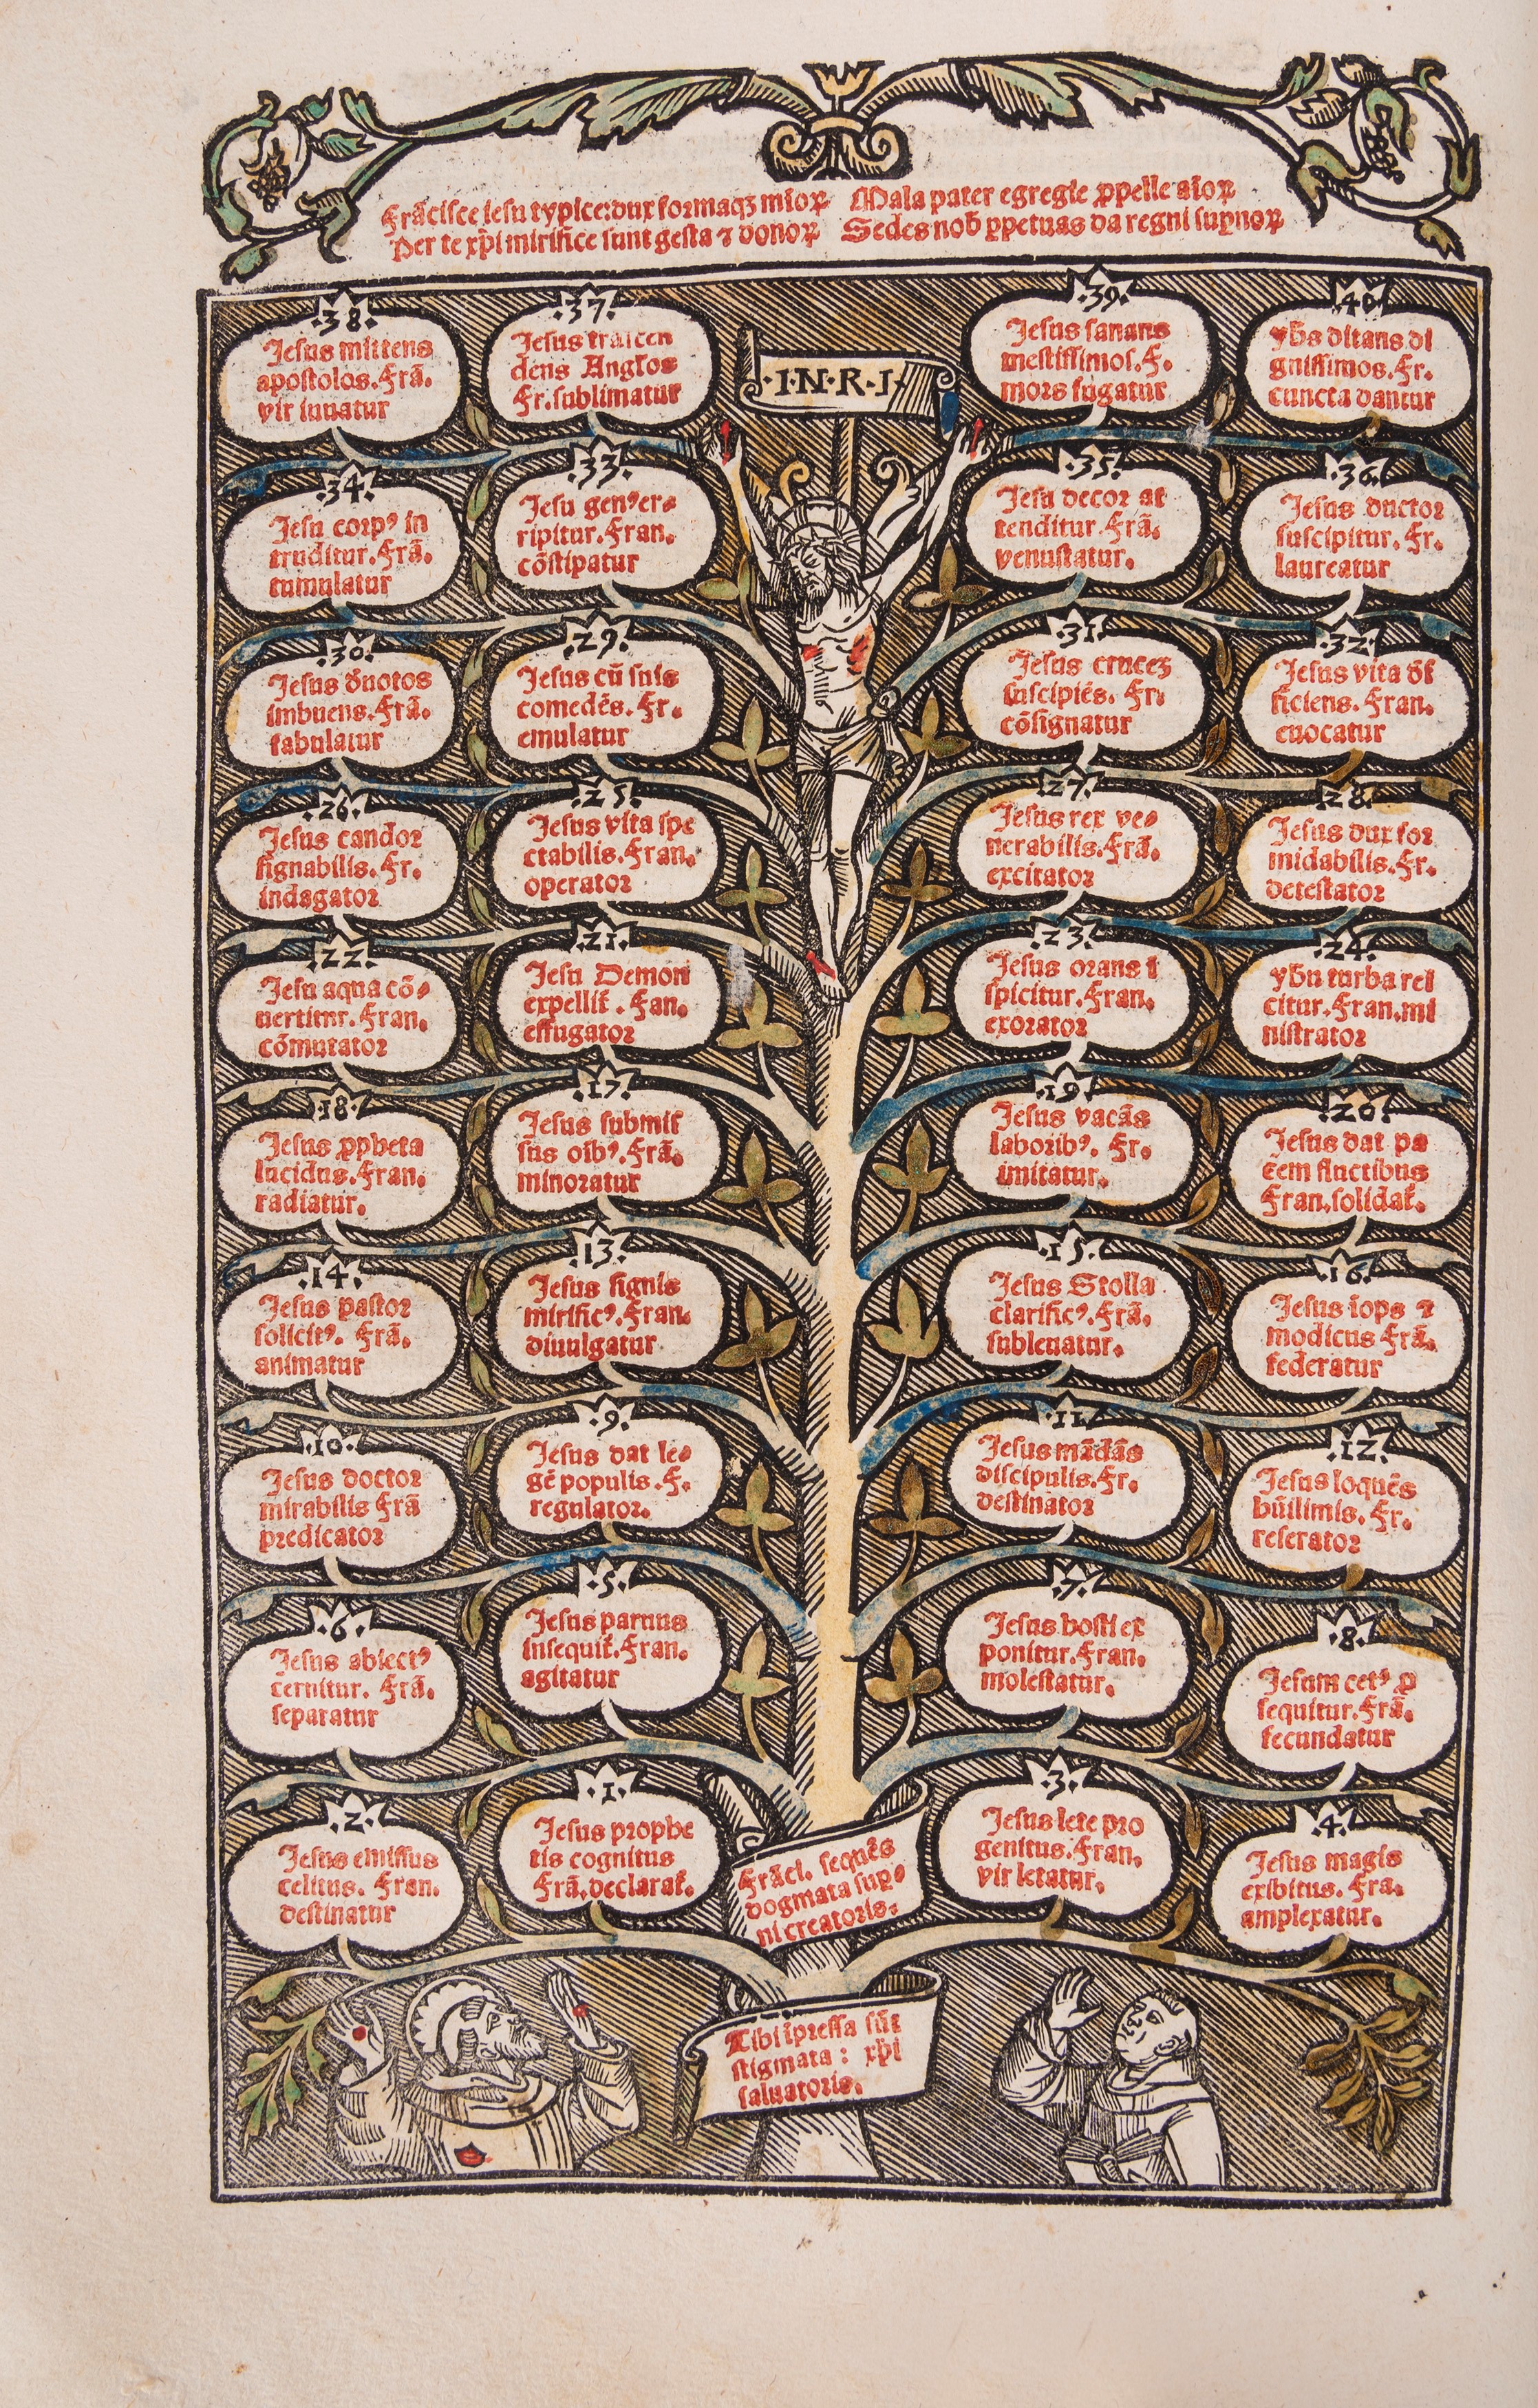 Frācisce iesu typice: dux formaqꝫ mīoꝝ Mala pater egregie ꝓpelle aīoꝝ
Per te xp̄i mirifice sunt gesta ⁊ donoꝝ Sedes nob̄ ꝑpetuas da regni suꝑnoꝝ
·38·
Jesus mittens
apostolos. Frā.
vir iuuatur
·37·
Jesus trascen
dens Anglos
Fr. sublimatur
·I·N·R·I·
·39·
Jesus sanans
mestissimos. F.
mors fugatur
·40·
yh̄s ditans di
gnissimos. Fr.
cuncta dantur
·34·
Jesu corpꝰ in
truditur. Frā.
tumulatur
·33·
Jesu genꝰ er-
ripitur. Fran.
cōstipatur
·35·
Jesu decor at
tenditur. Frā.
venustatur.
·36·
Jesus ductor
suscipitur. Fr.
laureatur
·30·
Jesus d̄uotos
imbuens. Frā.
fabulatur
·29·
Jesus cū suis
comedēs. Fr.
emulatur
·31·
Jesus crucez
suscipiēs. Fr.
cōsignatur
·32·
Jesus vita d̄i
ficiens. Fran.
euocatur
·26·
Jesus candor
signabilis. Fr.
indagator
·25·
Jesus vita spe
ctabilis. Fran.
operator
·27·
Jesus rex ve-
nerabilis. Frā.
excitator
·28·
Jesus dux for
midabilis. Fr.
detestator
·22·
Jesu aqua cō-
uertitur. Fran.
cōmutator
·21·
Jesu Demon
expellit̄. Fan.
effugator
·23·
Jesus orans ī
spicitur. Fran.
exorator
·24·
yh̄u turba rei
citur. Fran. mi
nistrator
·18·
Jesus ꝓpheta
lucidus. Fran.
radiatur.
·17·
Jesus submis
sus oib̄ꝰ. Frā.
minoratur
·19·
Jesus vacās
laboribꝰ. Fr.
imitatur.
·20·
Jesus dat pa
cem fluctibus
Fran. solidat̄.
·14·
Jesus pastor
solicitꝰ. Frā.
animatur
·13·
Jesus signis
mirificꝰ. Fran.
diuulgatur
·15·
Jesus Stolla
clarificꝰ. Frā.
subleuatur.
·16·
Jesus īops ⁊
modicus Frā.
federatur
·10·
Jesus doctor
mirabilis Frā
predicator
·9·
Jesus dat le-
gē populis. F.
regulator.
·11·
Jesus mādās
discipulis. Fr.
destinator
·12·
Jesus loquēs
hūilimis. Fr.
reserator
·6·
Jesus abiectꝰ
cernitur. Frā.
separatur
·5·
Jesus paruus
insequit̄. Fran.
agitatur
·7·
Jesus hosti ex
ponitur. Fran.
molestatur.
·8·
Jesum cetꝰ ꝓ
sequitur. Frā.
fecundatur
·2·
Jesus emissus
celitus. Fran.
destinatur
·1·
Jesus prophe
tis cognitus
Frā. declarat̄.
·3·
Jesus lete pro
genitus. Fran.
vir letatur.
·4·
Jesus magis
exibitus. Fra.
amplexatur.
Frāci. sequēs
dogmata suꝑ-
ni creatoris.
Tibi īpressa sūt
stigmata: xp̄i
saluatoris.